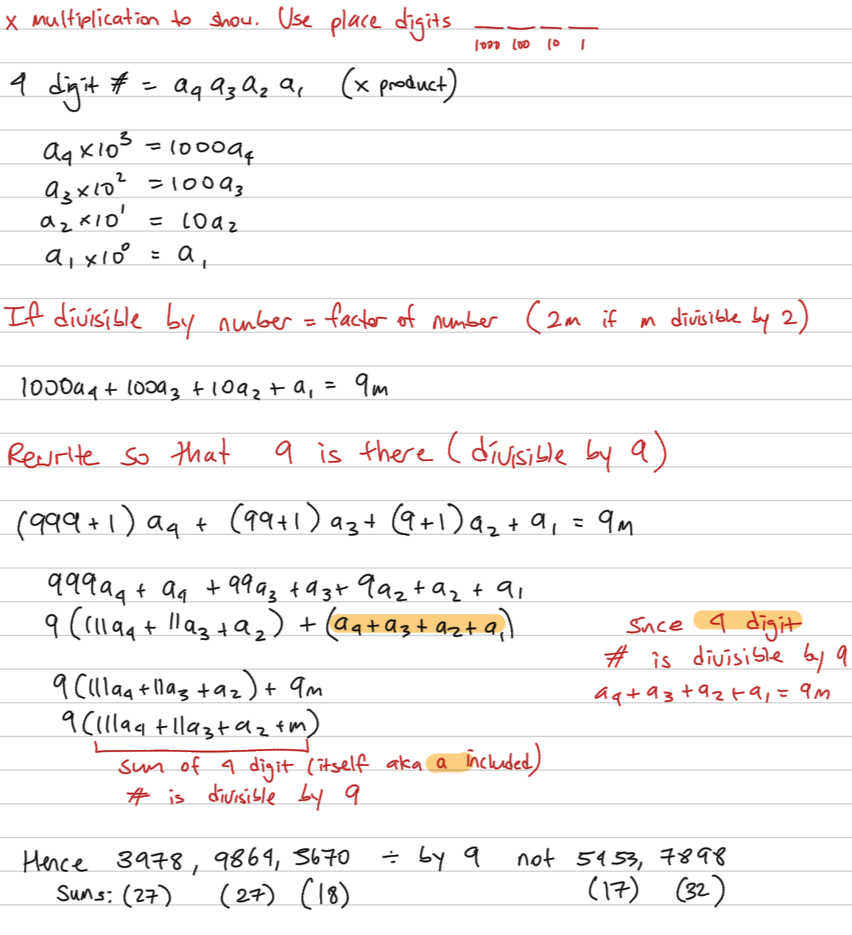 x multiplication to show. Use place digits __ __ __ __
1000 100 10 1
4 digit # = a₄ a₃ a₂ a₁ (x product)
a₄ × 10³ = 1000a₄
a₃ × 10² = 100a₃
a₂ × 10¹ = 10a₂
a₁ × 10⁰ = a₁
If divisible by number = factor of number (2m if m divisible by 2)
1000a₄ + 100a₃ + 10a₂ + a₁ = 9m
Rewrite so that 9 is there (divisible by 9)
(999+1) a₄ + (99+1) a₃ + (9+1) a₂ + a₁ = 9m
999a₄ + a₄ + 99a₃ + a₃ + 9a₂ + a₂ + a₁
9 (111a₄ + 11a₃ + a₂) + (a₄ + a₃ + a₂ + a₁)
Since 4 digit
# is divisible by 9
a₄ + a₃ + a₂ + a₁ = 9m
9 (111a₄ + 11a₃ + a₂) + 9m
9 (111a₄ + 11a₃ + a₂ + m)
sum of 4 digit (itself aka a included)
# is divisible by 9
Hence 3978, 9864, 5670 ÷ by 9 not 5453, 7898
Sums: (27) (27) (18) (17) (32)